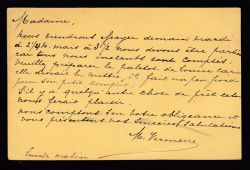 Madame,
Nous viendrons essayer demain mardi
à 2¼h. mais à 3½ nous devons être partis
car tous nos instants sont comptés.
Veuillez préparer le paletot de Louise car
elle devrait le mettre, il fait un peu froid
pour son petit
S'il y a quelqu'autre chose de prêt cela
nous ferait plaisir
nous comptons sur votre obligeance et
vous présentons nos sincères salutations
M.
Lundi matin